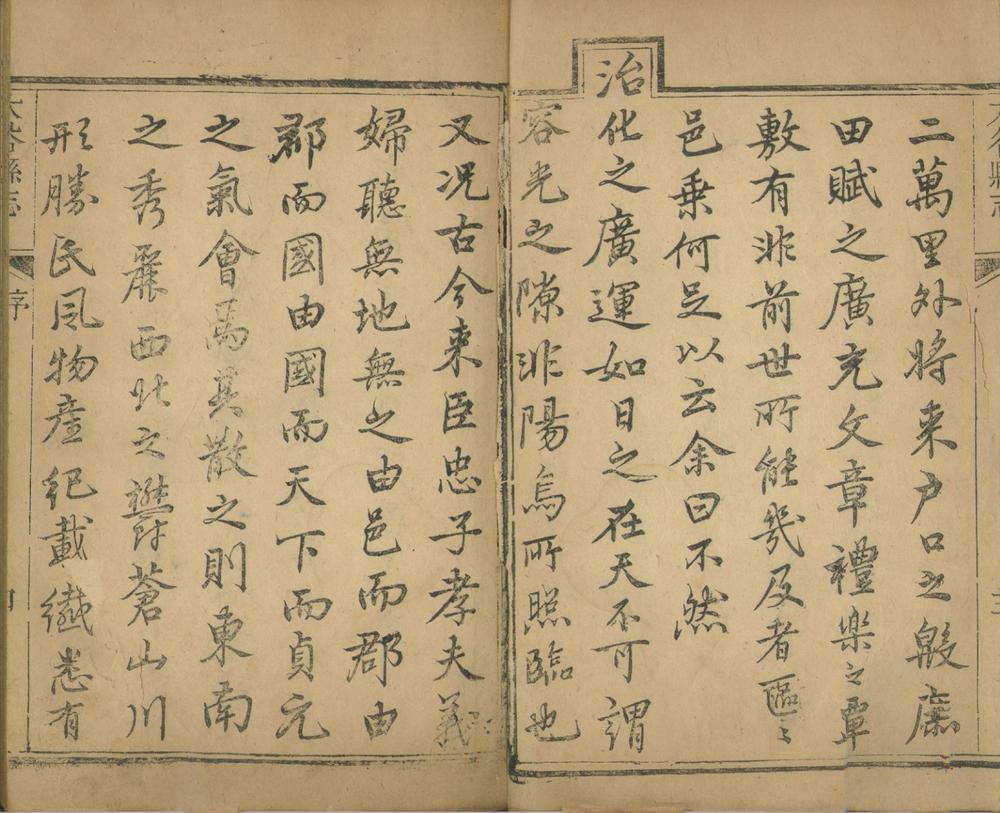 二萬里外將來户口之殷庶
田賦之廣充文章禮樂之覃
敷有非前世所能幾及者區〻
邑乗何足以云余曰不然
治化之廣運如日之在天不可謂
容光之隙非陽烏所照臨也
又况古今来臣忠子孝夫義
婦聽無地無之由邑而郡由
郡而國由國而天下而貞元
之氣會焉其散之則東南
之秀麗西北之蒼山川
形勝民風物產紀載纖悉有
縣志
序